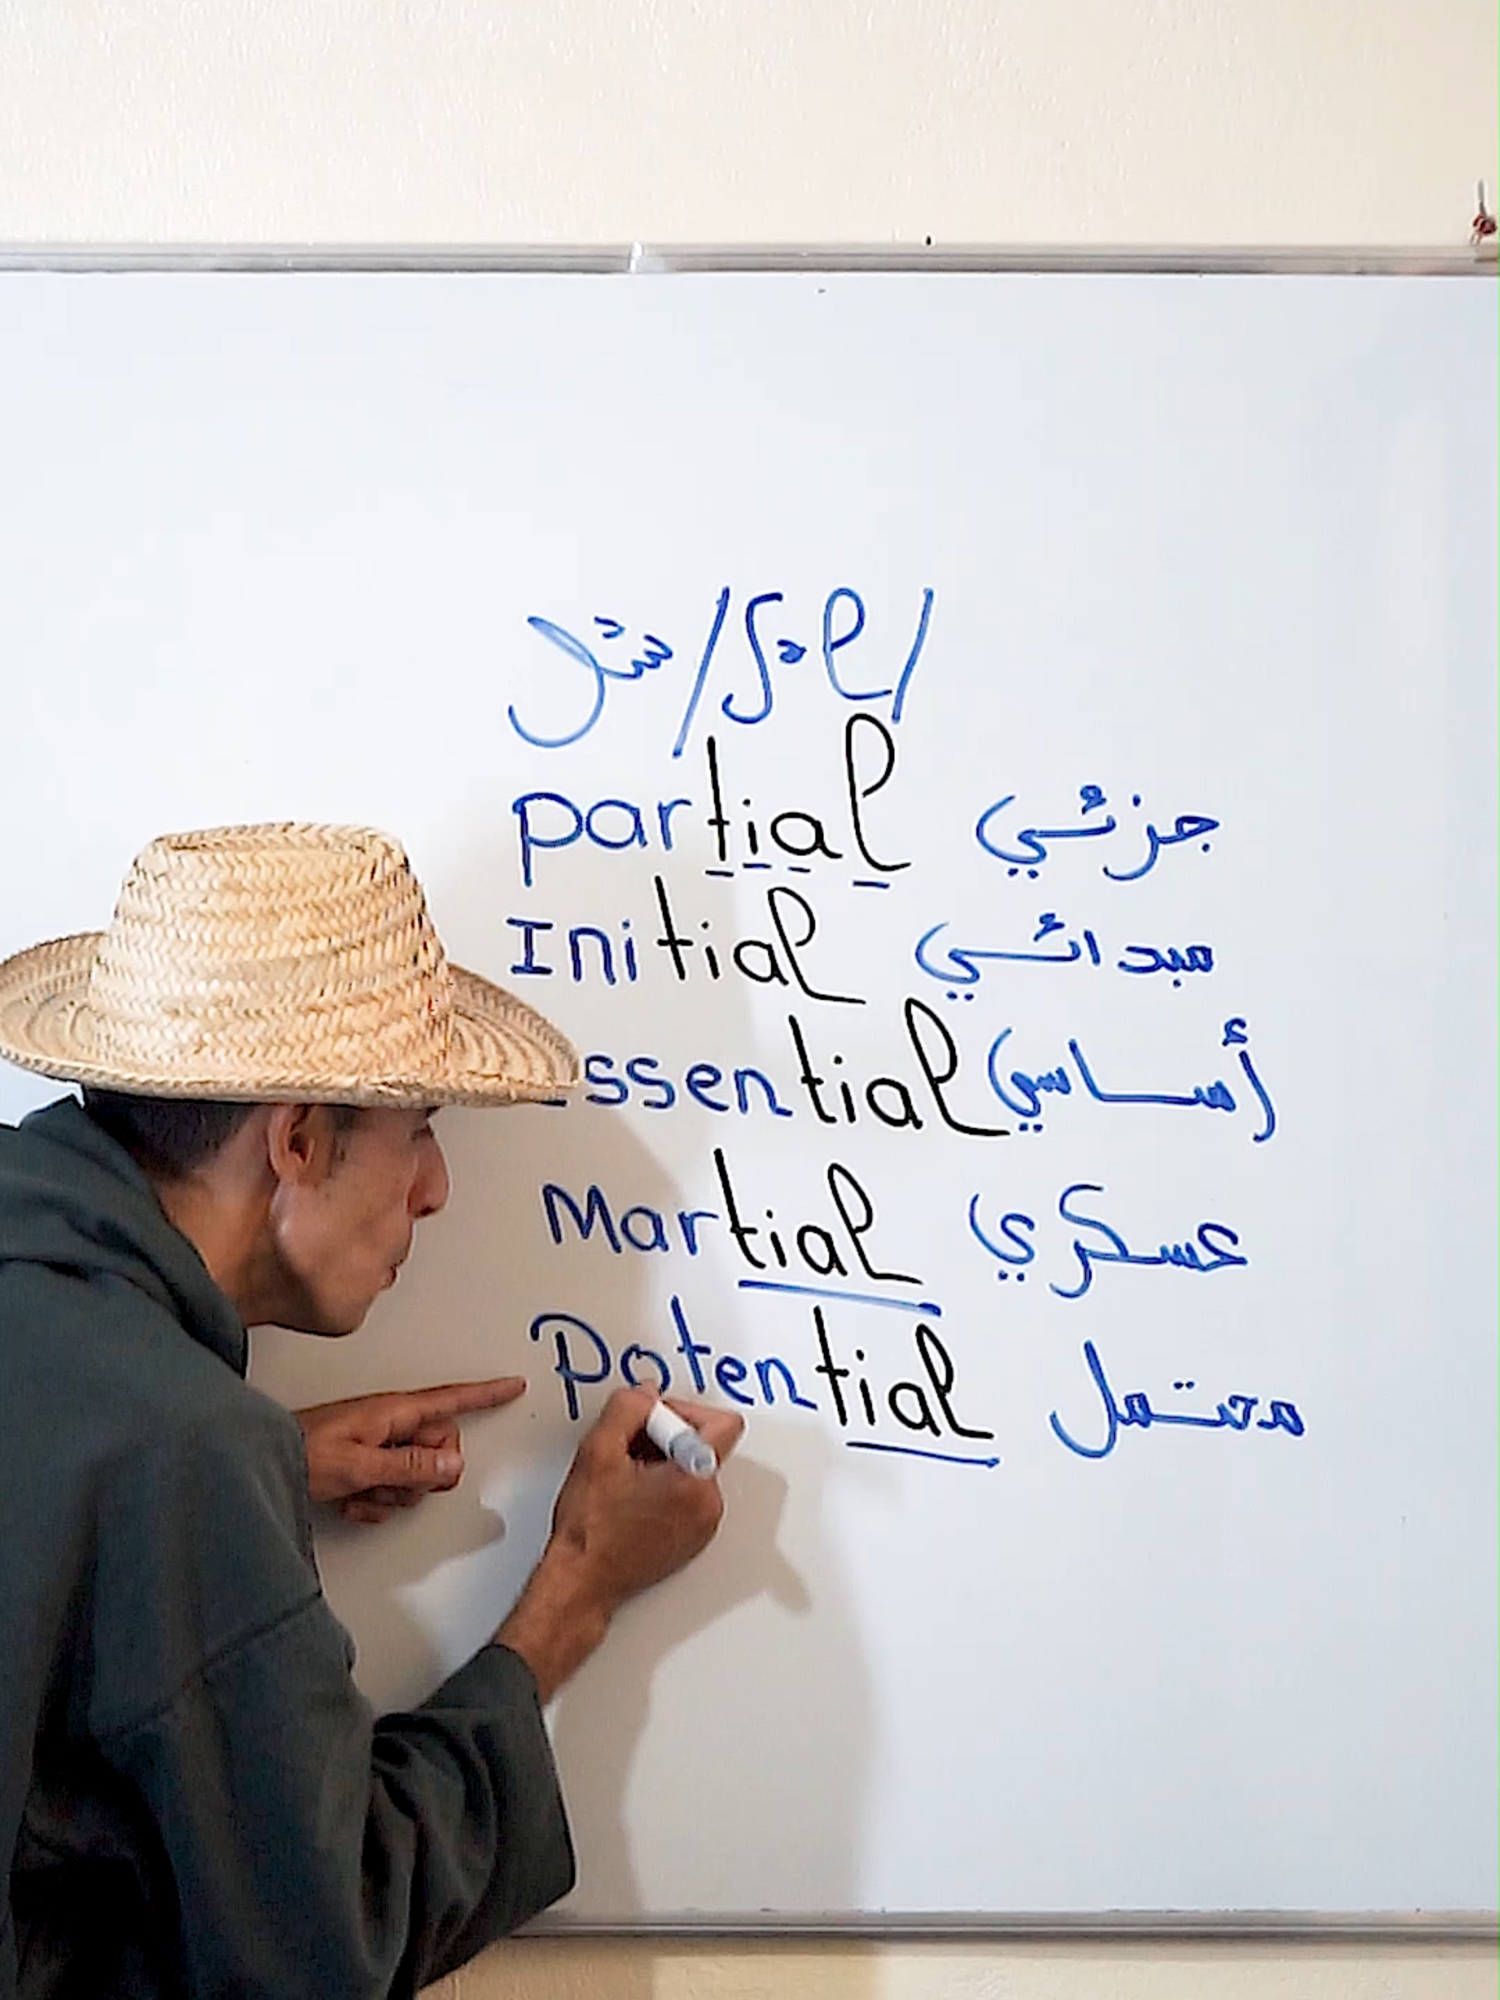 شل /ʃəl/
partial جزئي
Initial مبدائي
ssential أساسي
Martial عسكري
Potential محتمل